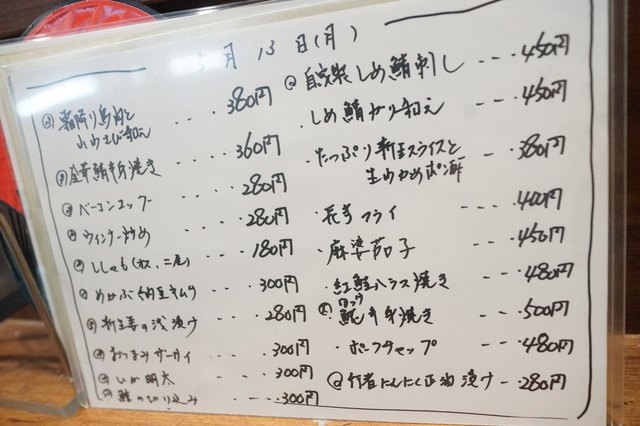 5月13日(月)
霜降り馬肉と
山わさび和え 380円
金華鯖半身焼き 360円
ベーコンエッグ 280円
ウィンナー炒め 280円
ししゃも(オス、二尾) 180円
めかぶ納豆キムチ 300円
新生姜の浅漬け 280円
おつまみザーサイ 300円
いか明太 300円
鮭の切り込み 300円
自家製しめ鯖刺し 450円
しめ鯖ガリ和え 450円
たっぷり新玉スライスと
生わかめポン酢 380円
長芋フライ 400円
麻婆茄子 450円
紅鮭ハラス焼き 480円
半身焼き 500円
ポークチャップ 480円
行者にんにく正油漬け 280円